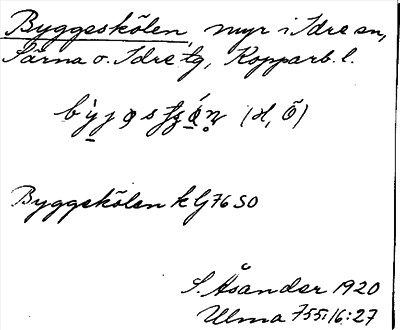 Byggeskölen, myr i Idre sn,
Särna o. Idre tg, Kopparb. l.
(H, Õ)
Byggekölen k G76 SO
S. Åsander 1920
Ulma 755:16:27